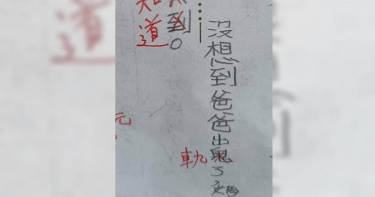 沒想到爸爸出鬼了
軌
到。
知道
元